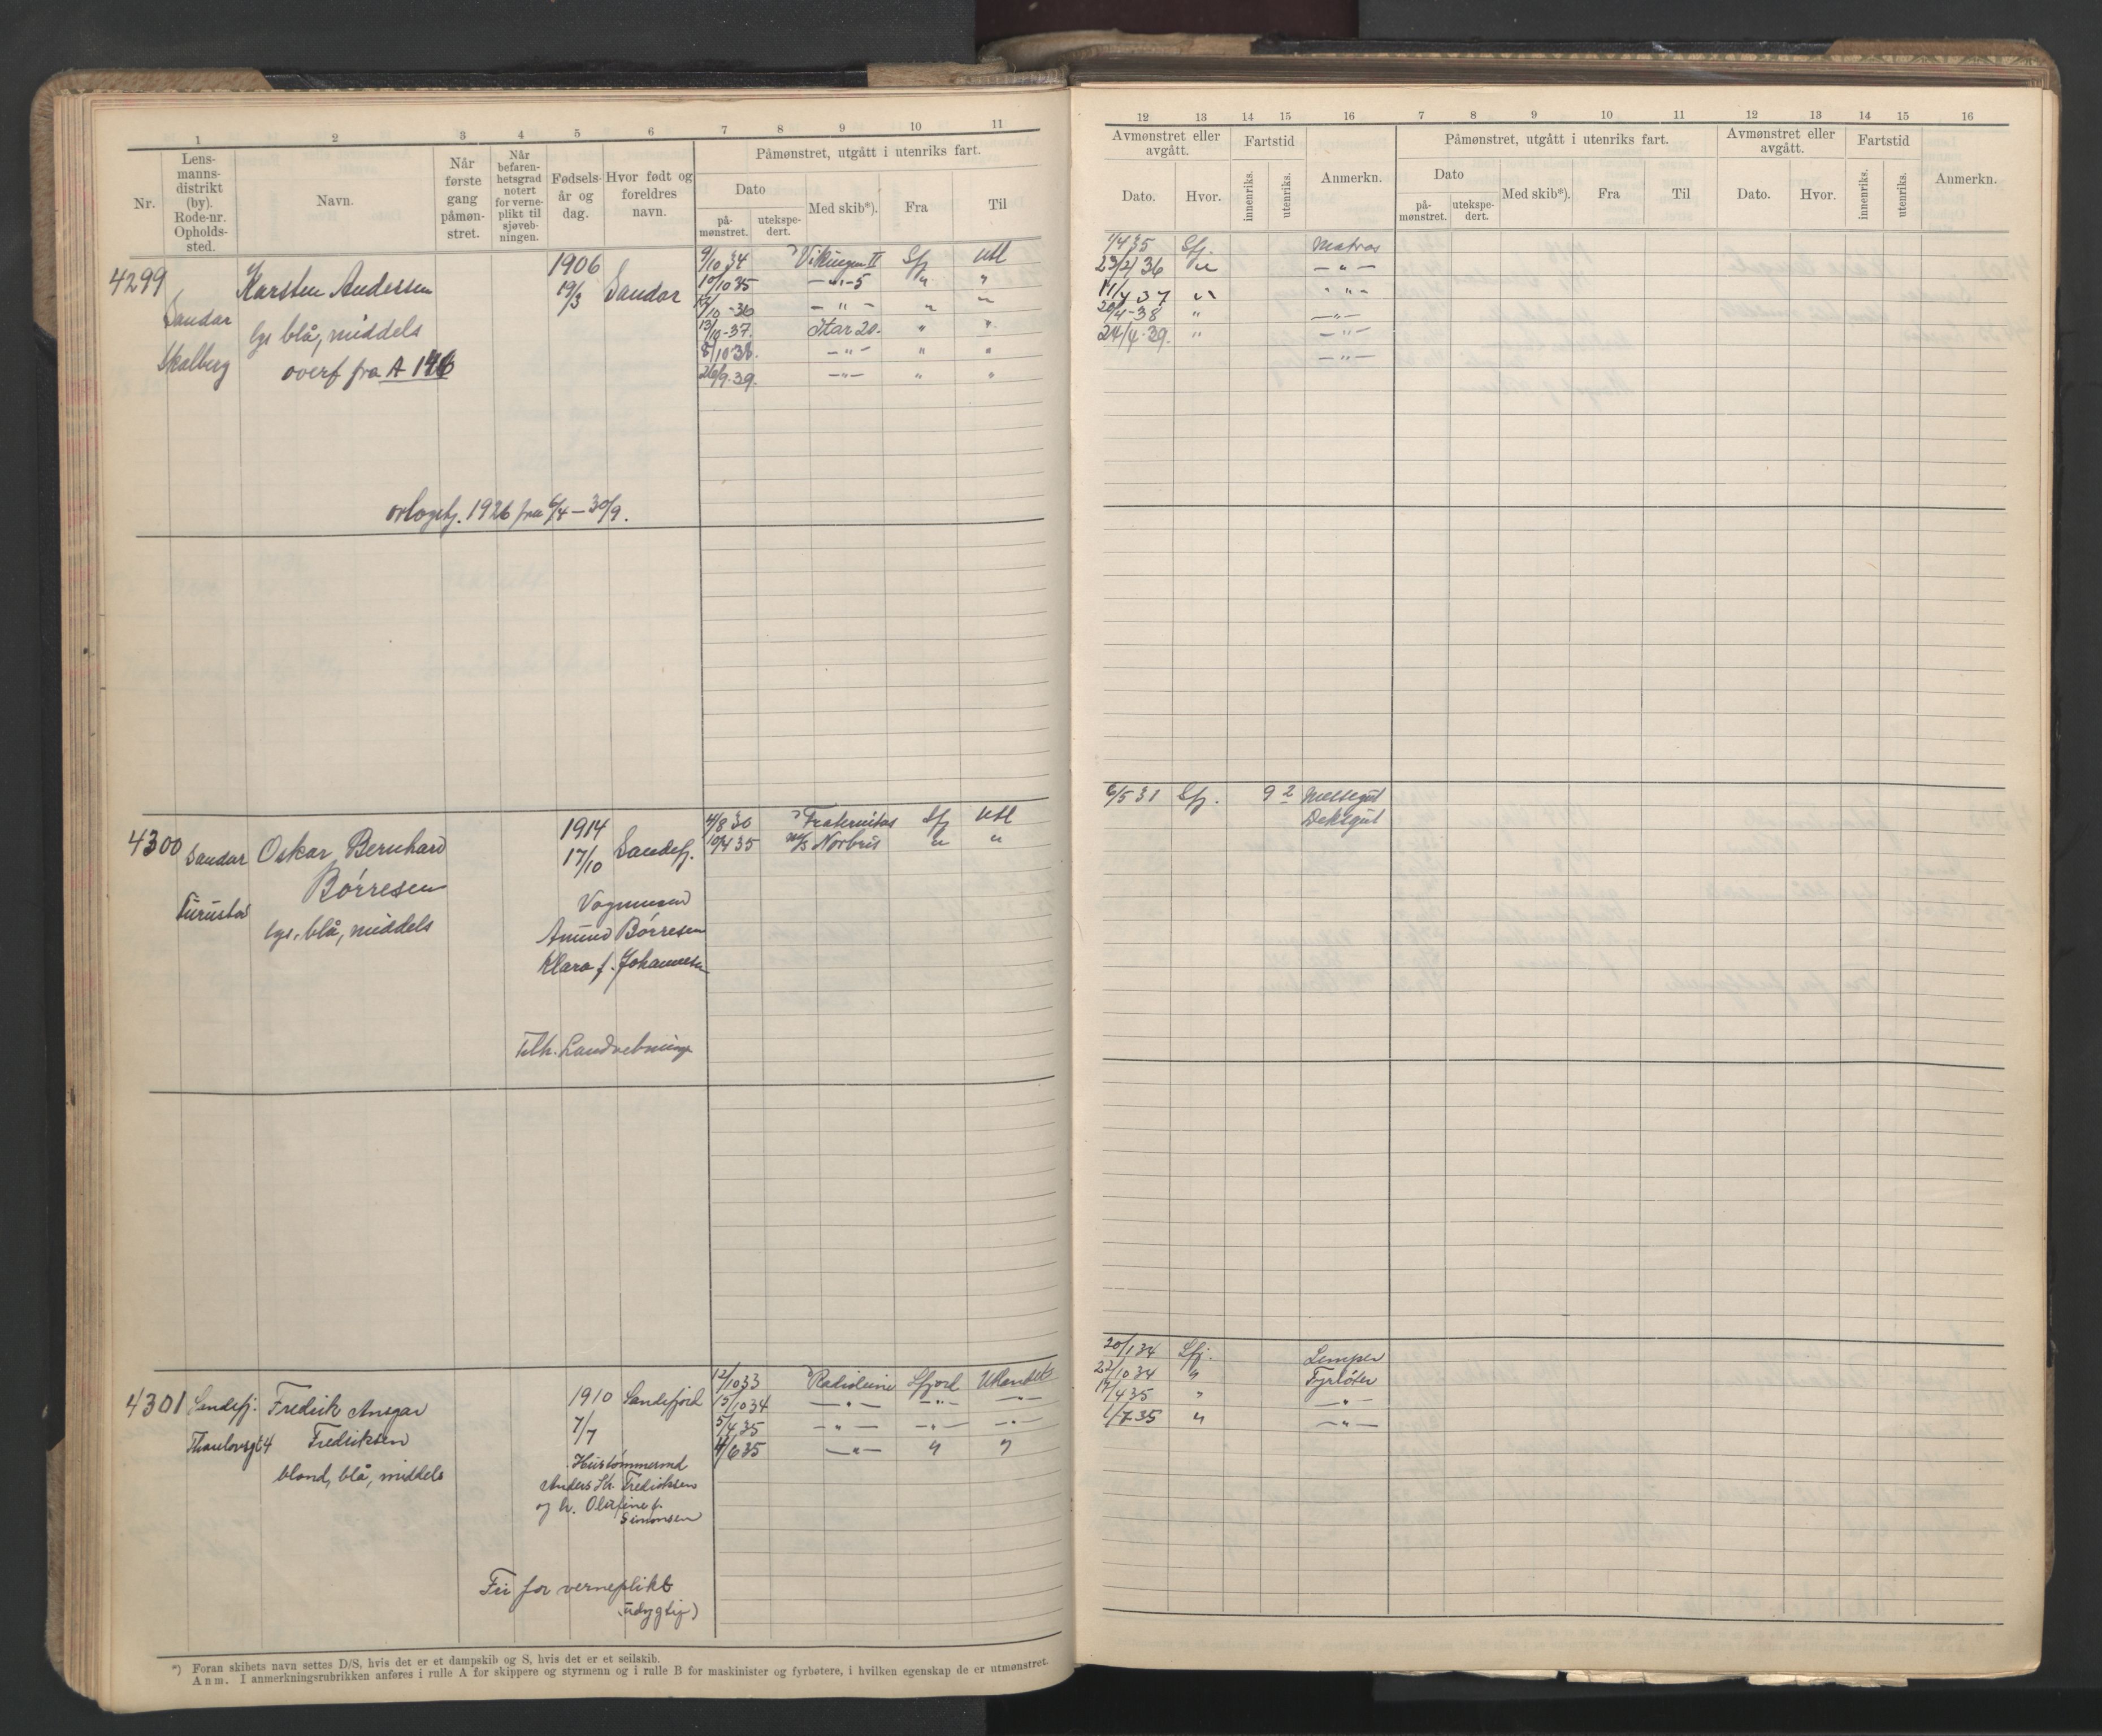 1 2 3 4 5 6 7 8 9 10 11
Nr.
Lens-
manns-
distrikt
(by).
Rode-nr.
Opholds-
sted.
Navn.
Når
første
gang
påmøn-
stret.
Når
befaren-
hetsgrad
notert
for verne-
plikt til
sjøveb-
ningen.
Fødsels-
år og
dag.
Hvor født og
foreldres
navn.
Påmønstret, utgått i utenriks fart.
Dato
på-
mønstret.
utekspe-
dert.
Med skib*).
Fra
Til
4299
Sandar
Skolberg
Karsten Andersen
lys blå, middels
overf fra A 146
1906
19/3
Sandar
9/10 34 Vikingen II Sfj Utl
10/10 35 — " — 5 " "
/10 -36 — " — " "
13/10-37. Star 20. " "
8/10 38. — " — " "
26/9.39. — " — " "
orlogstj. 1926 fra 6/4 — 30/9.
4300
Sandar
Furustad
Oskar Bernhard
Børresen
lys, blå, middels
1914
17/10
Sandefj.
Vognmann
Amund Børresen
Klara f. Johannesen
4/8 30 Fraternitas Sfj Utl
10/4 35 M/S Norbris " "
Tilh. Landvebninge
4301
Sandefj.
Thaulowsgt 4
Fredrik Ansgar
Fredriksen
blond, blå, middels
1910
7/7
Sandefjord
Hustømmermd
Anders Kr. Fredriksen
og h. Olefine f.
Simonsen
12/10 33 Radioleine Sfjord Utlandet
15/10 34 — " — — " — — " —
5/4 35 — " — — " — — " —
4/6 35 — " — " "
Fri for verneplikt
(udygtig)
*) Foran skibets navn settes D/S, hvis det er et dampskib og S, hvis det er et seilskib.
Anm. I anmerkningsrubrikken anføres i rulle A for skippere og styrmenn og i rulle B for maskinister og fyrbøtere, i hvilken egenskap de er utmønstret.
12 13 14 15 16 7 8 9 10 11 12 13 14 15 16
Avmønstret eller
avgått.
Dato.
Hvor.
Fartstid
innenriks.
utenriks.
Anmerkn.
Påmønstret, utgått i utenriks fart.
Dato
på-
mønstret.
utekspe-
dert.
Med skib*).
Fra
Til
Avmønstret eller
avgått.
Dato.
Hvor.
Fartstid
innenriks.
utenriks.
Anmerkn.
1/4 35 Sfj. Matros
23/2 36 " — " —
11/4 37 " " " —
20/4-38 " — " —
24/4.39. " — " —
— " —
6/5 31 Sfj. 9 2 Messegut
Dekksgut
20/1 34 Sfj. Lemper
22/10 34 " Fyrbøter
17/4 35 " — " —
1/7 35 " — " —